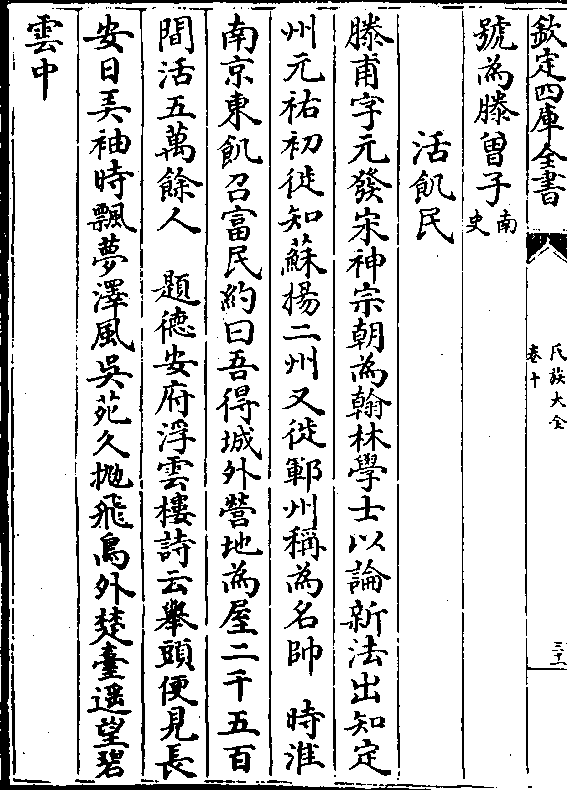 欽定四庫全書
氏族大全
卷十
三十二
號為滕曾子南史
活飢民
滕甫字元發宋神宗朝為翰林學士以論新法出知定
州元祐初徙知蘇揚二州又徙鄆州稱為名帥　時淮
南京東飢召富民約曰吾得城外營地為屋二千五百
間活五萬餘人　題德安府浮雲樓詩云舉頭便見長
安日弄袖時飄夢澤風吳苑久抛飛鳥外楚臺遥望碧
雲中